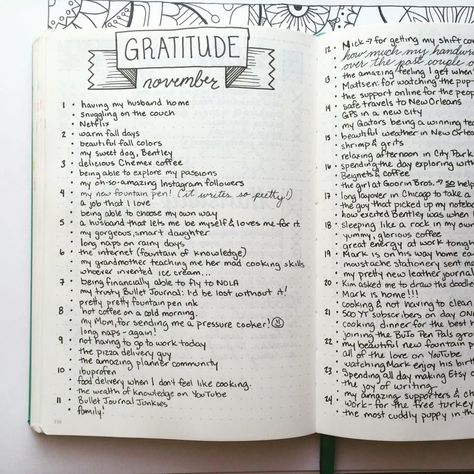 GRATITUDE
november
1 • having my husband home
• snuggling on the couch
• Netflix
2 • warm fall days
• beautiful fall colors
• my sweet dog, Bentley
3 • delicious Chemex coffee
• being able to explore my passions
• my oh-so-amazing Instagram followers
4 • my new fountain pen! (it writes so pretty!)
• a job that I love
• being able to choose my own way
5 • a husband that lets me be myself & loves me for it.
• my gorgeous & smart daughter
• long naps on rainy days
6 • the internet (fountain of knowledge)
• my grandmother teaching me her mad cooking skills
• whoever invented ice cream...
7 • being financially able to fly to NOLA
• my trusty Bullet Journal: I'd be lost without it!
• pretty pretty fountain pen ink
8 • hot coffee on a cold morning.
• my Mom, for sending me a pressure cooker!
• long naps - again!
9 • not having to go to work today
• the pizza delivery guy
• the amazing planner community
10 • ibuprofen
• food delivery when I don't feel like cooking.
• the wealth of knowledge on YouTube
11 • Bullet Journal Junkies
• family!
12 • Nick → for getting my shift
• how much my
over the past couple
• the amazing feeling I get when
13 • Matteson: for watching the pup
• the support online for the
14 • safe travels to New Orleans
• GPS in a new city
• my Gators being a winning
15 • beautiful weather in New
• shrimp & grits
• relaxing afternoon in City Park
16 • spending the day exploring
• Beignets & coffee
• the girl at Goorin Bros. → so
17 • long layover in Chicago to take a
• the guy that picked up my
• how excited Bentley was when
18 • sleeping like a rock in my own
• yummy, glorious coffee
• great energy at work
19 • Mark is on his way home
• moustache stationery sent
• my pretty new leather
20 • Kim asked me to draw the
• Mark is home!!!
• cooking & not having to clean
21 • 500 YT subscribers on day
• cooking dinner for the best
• joining the BuJo Pen Pals
22 • my beautiful new fountain
• all of the love on YouTube
• watching Mark enjoy his
23 • Spending all day making Etsy
• the joy of writing
• my amazing supporters &
24 • work - for the free turkey
• the most cuddly puppy in the